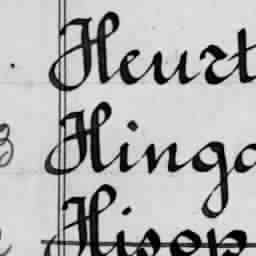 Heurt
Hinga
Hisop